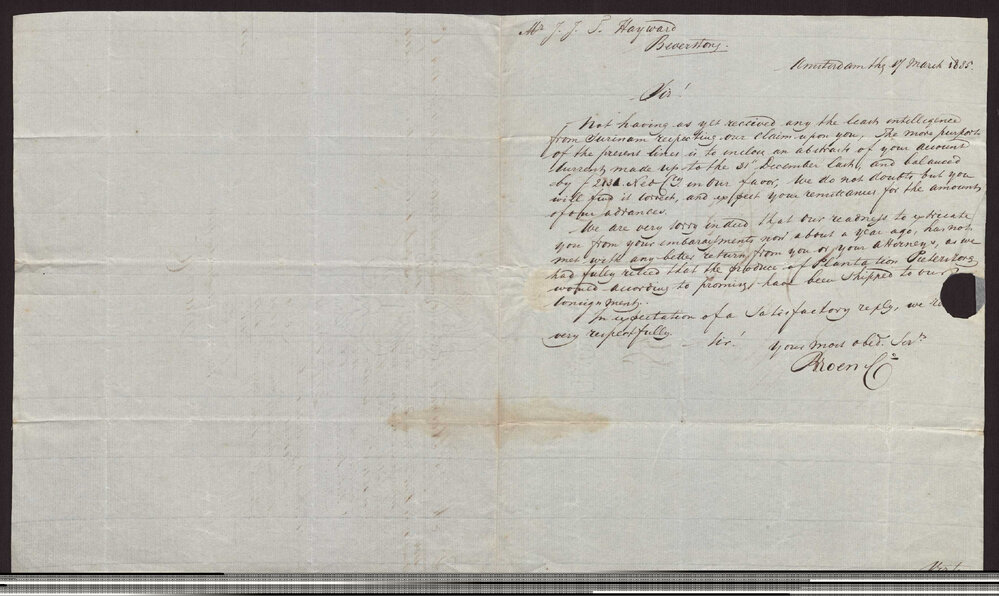 Mr J. J. S. Hayward
Beverstong.
Amsterdam the 17 March 1835.
Sir!
Not having as yet received any the least intellegence
from Surinam respecting our Claim upon you, The more purport
of the present lines is to inclose an abstract of your account
Current made up to the 31st December last, and balanced
by f 2131. Ned Cy. in our favor, We do not doubt but you
will find it correct, and expect your remittances for the amount
of our advances.
We are very sorry indeed that our readness to extricate
you from your embarassments now about a year ago, has not
met with any better return from you or your attorneys, as we
had fully relied that the produce of Plantation Pieterstorg
would according to promises have been shipped to our
Consignment.
In expectation of a Satisfactory reply, we re
very respectfully. Sir! Yours most obed. Servts
Kroen Co